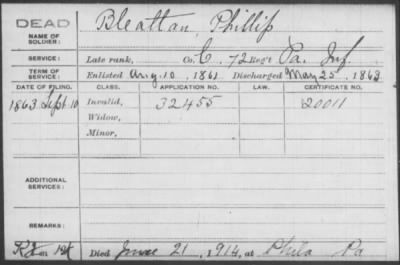 DEAD
NAME OF SOLDIER: Bleattan, Phillip
SERVICE: Late rank, Co. C, 72 Reg't Pa. Inf.
TERM OF SERVICE: Enlisted Aug. 10, 1861 Discharged May 25, 1863
DATE OF FILING. CLASS. APPLICATION NO. LAW. CERTIFICATE NO.
1863 Sept. 10 Invalid, 32455 20011
Widow,
Minor,
ADDITIONAL SERVICES:
REMARKS:
Died June 21, 1914, at Phila Pa